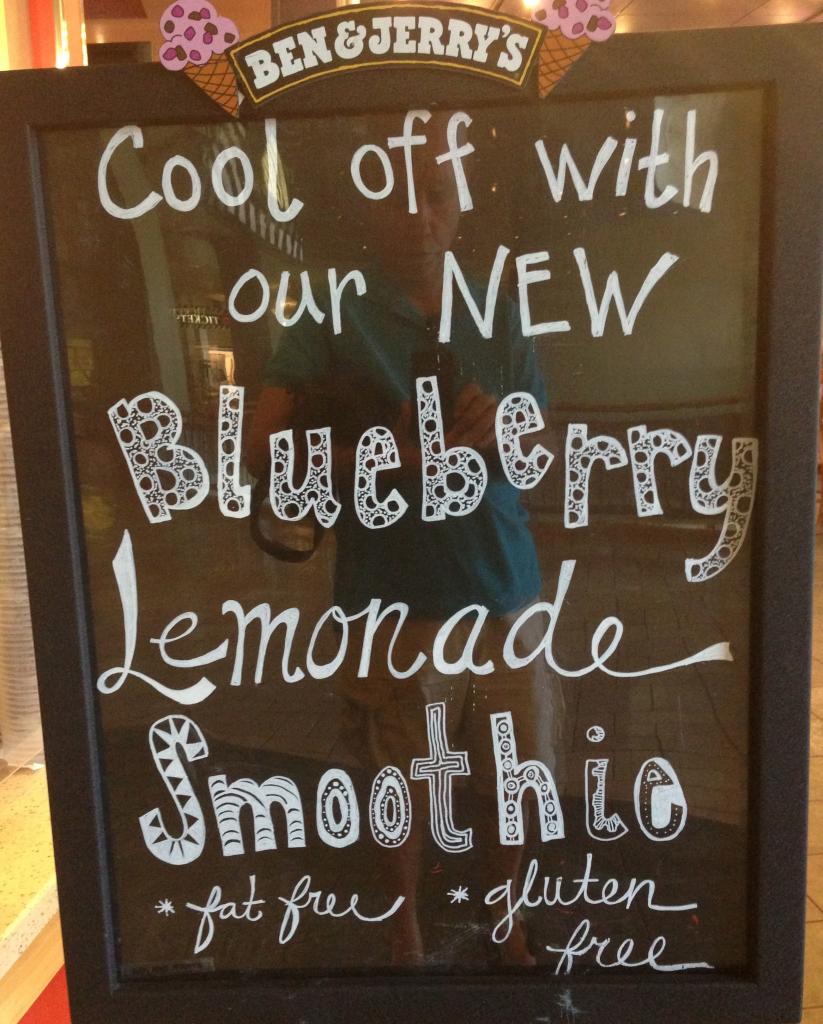 BEN & JERRY'S
Cool off with
our NEW
Blueberry
Lemonade
Smoothie
* fat free * gluten
free